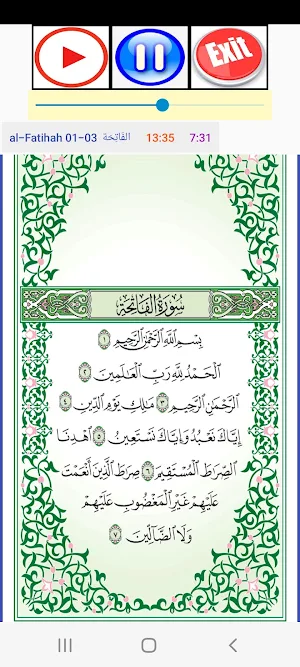 Exit
al-Fatihah 01-03 الفَاتِحَة 13:35 7:31
سُورَةُ الفَاتِحَةِ
بِسْمِ اللَّهِ الرَّحْمَٰنِ الرَّحِيمِ ١
الْحَمْدُ لِلَّهِ رَبِّ الْعَالَمِينَ ٢
الرَّحْمَٰنِ الرَّحِيمِ ٣ مَالِكِ يَوْمِ الدِّينِ ٤
إِيَّاكَ نَعْبُدُ وَإِيَّاكَ نَسْتَعِينُ ٥ اهْدِنَا
الصِّرَاطَ الْمُسْتَقِيمَ ٦ صِرَاطَ الَّذِينَ أَنْعَمْتَ
عَلَيْهِمْ غَيْرِ الْمَغْضُوبِ عَلَيْهِمْ
وَلَا الضَّالِّينَ ٧